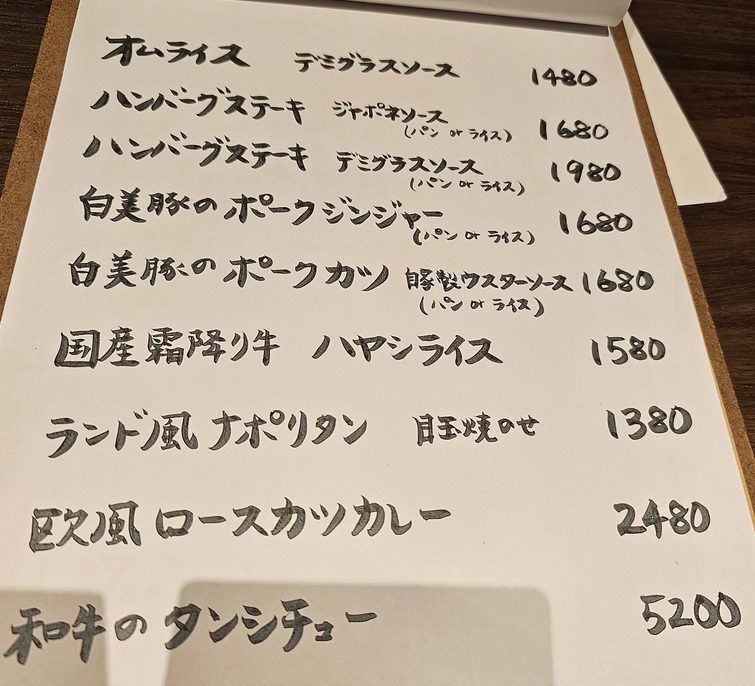 オムライス デミグラスソース 1480
ハンバーグステーキ ジャポネソース 1680
(パン or ライス)
ハンバーグステーキ デミグラスソース 1980
(パン or ライス)
白美豚のポークジンジャー 1680
(パン or ライス)
白美豚のポークカツ 自家製ウスターソース 1680
(パン or ライス)
国産霜降り牛 ハヤシライス 1580
ランド風ナポリタン 目玉焼のせ 1380
欧風ロースカツカレー 2480
和牛のタンシチュー 5200